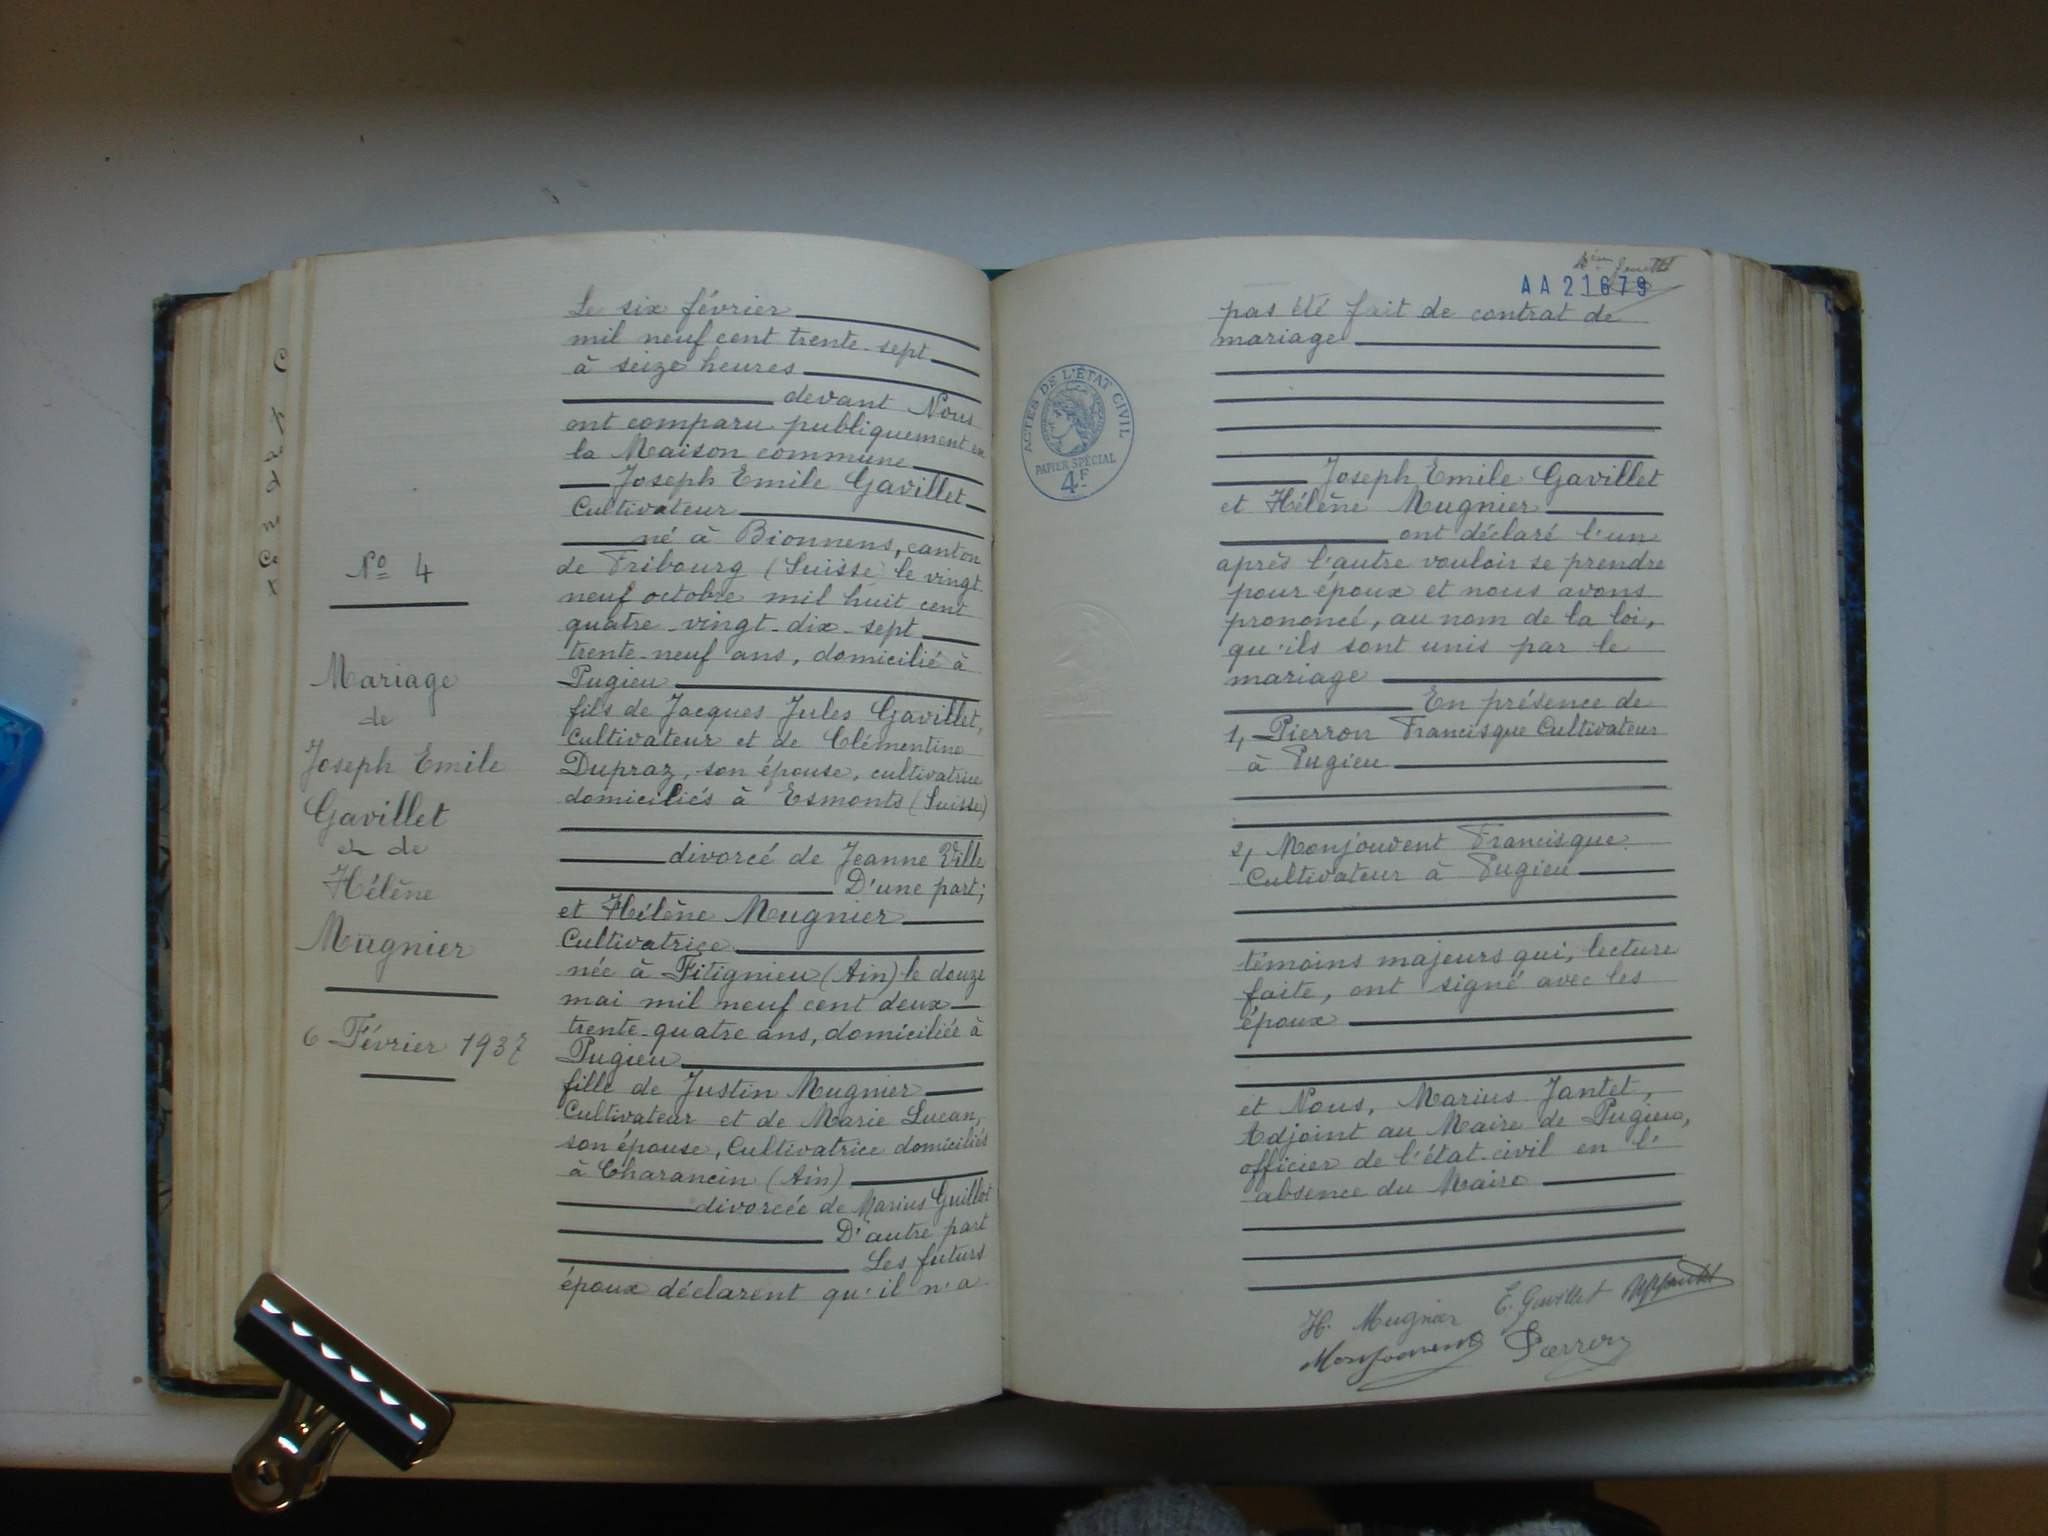 No 4
Mariage
de
Joseph Emile
Gavillet
et de
Hélène
Mugnier
6 Février 1937
Le six février
mil neuf cent trente-sept
à seize heures
devant Nous
ont comparu publiquement en
la Maison commune
Joseph Emile Gavillet
Cultivateur
né à Bionnens, canton
de Fribourg (Suisse) le vingt-
neuf octobre mil huit cent
quatre-vingt-dix-sept
trente-neuf ans, domicilié à
Pugieu
fils de Jacques Jules Gavillet,
Cultivateur et de Clémentine
Dupraz, son épouse, cultivatrice
domiciliés à Esmonts (Suisse)
divorcé de Jeanne Ville
D'une part;
et Hélène Mugnier
Cultivatrice
née à Fitignieu (Ain) le douze
mai mil neuf cent deux
trente-quatre ans, domiciliée à
Pugieu
fille de Justin Mugnier
Cultivateur et de Marie Lucan,
son épouse, Cultivatrice domiciliés
à Charancin (Ain)
divorcée de Marius Guillot
D'autre part
Les futurs
époux déclarent qu'il n'a
AA21679
pas été fait de contrat de
mariage
ACTES DE L'ÉTAT CIVIL
PAPIER SPÉCIAL
4F
Joseph Emile Gavillet
et Hélène Mugnier
ont déclaré l'un
après l'autre vouloir se prendre
pour époux et nous avons
prononcé, au nom de la loi,
qu'ils sont unis par le
mariage
En présence de
1, Pierron Francisque Cultivateur
à Pugieu
2, Monjouvent Francisque
Cultivateur à Pugieu
témoins majeurs qui, lecture
faite, ont signé avec les
époux
et Nous, Marius Jantet,
Adjoint au Maire de Pugieu,
officier de l'état-civil en l'
absence du Maire
H. Mugnier E. Gavillet
Monjouvent Pierron